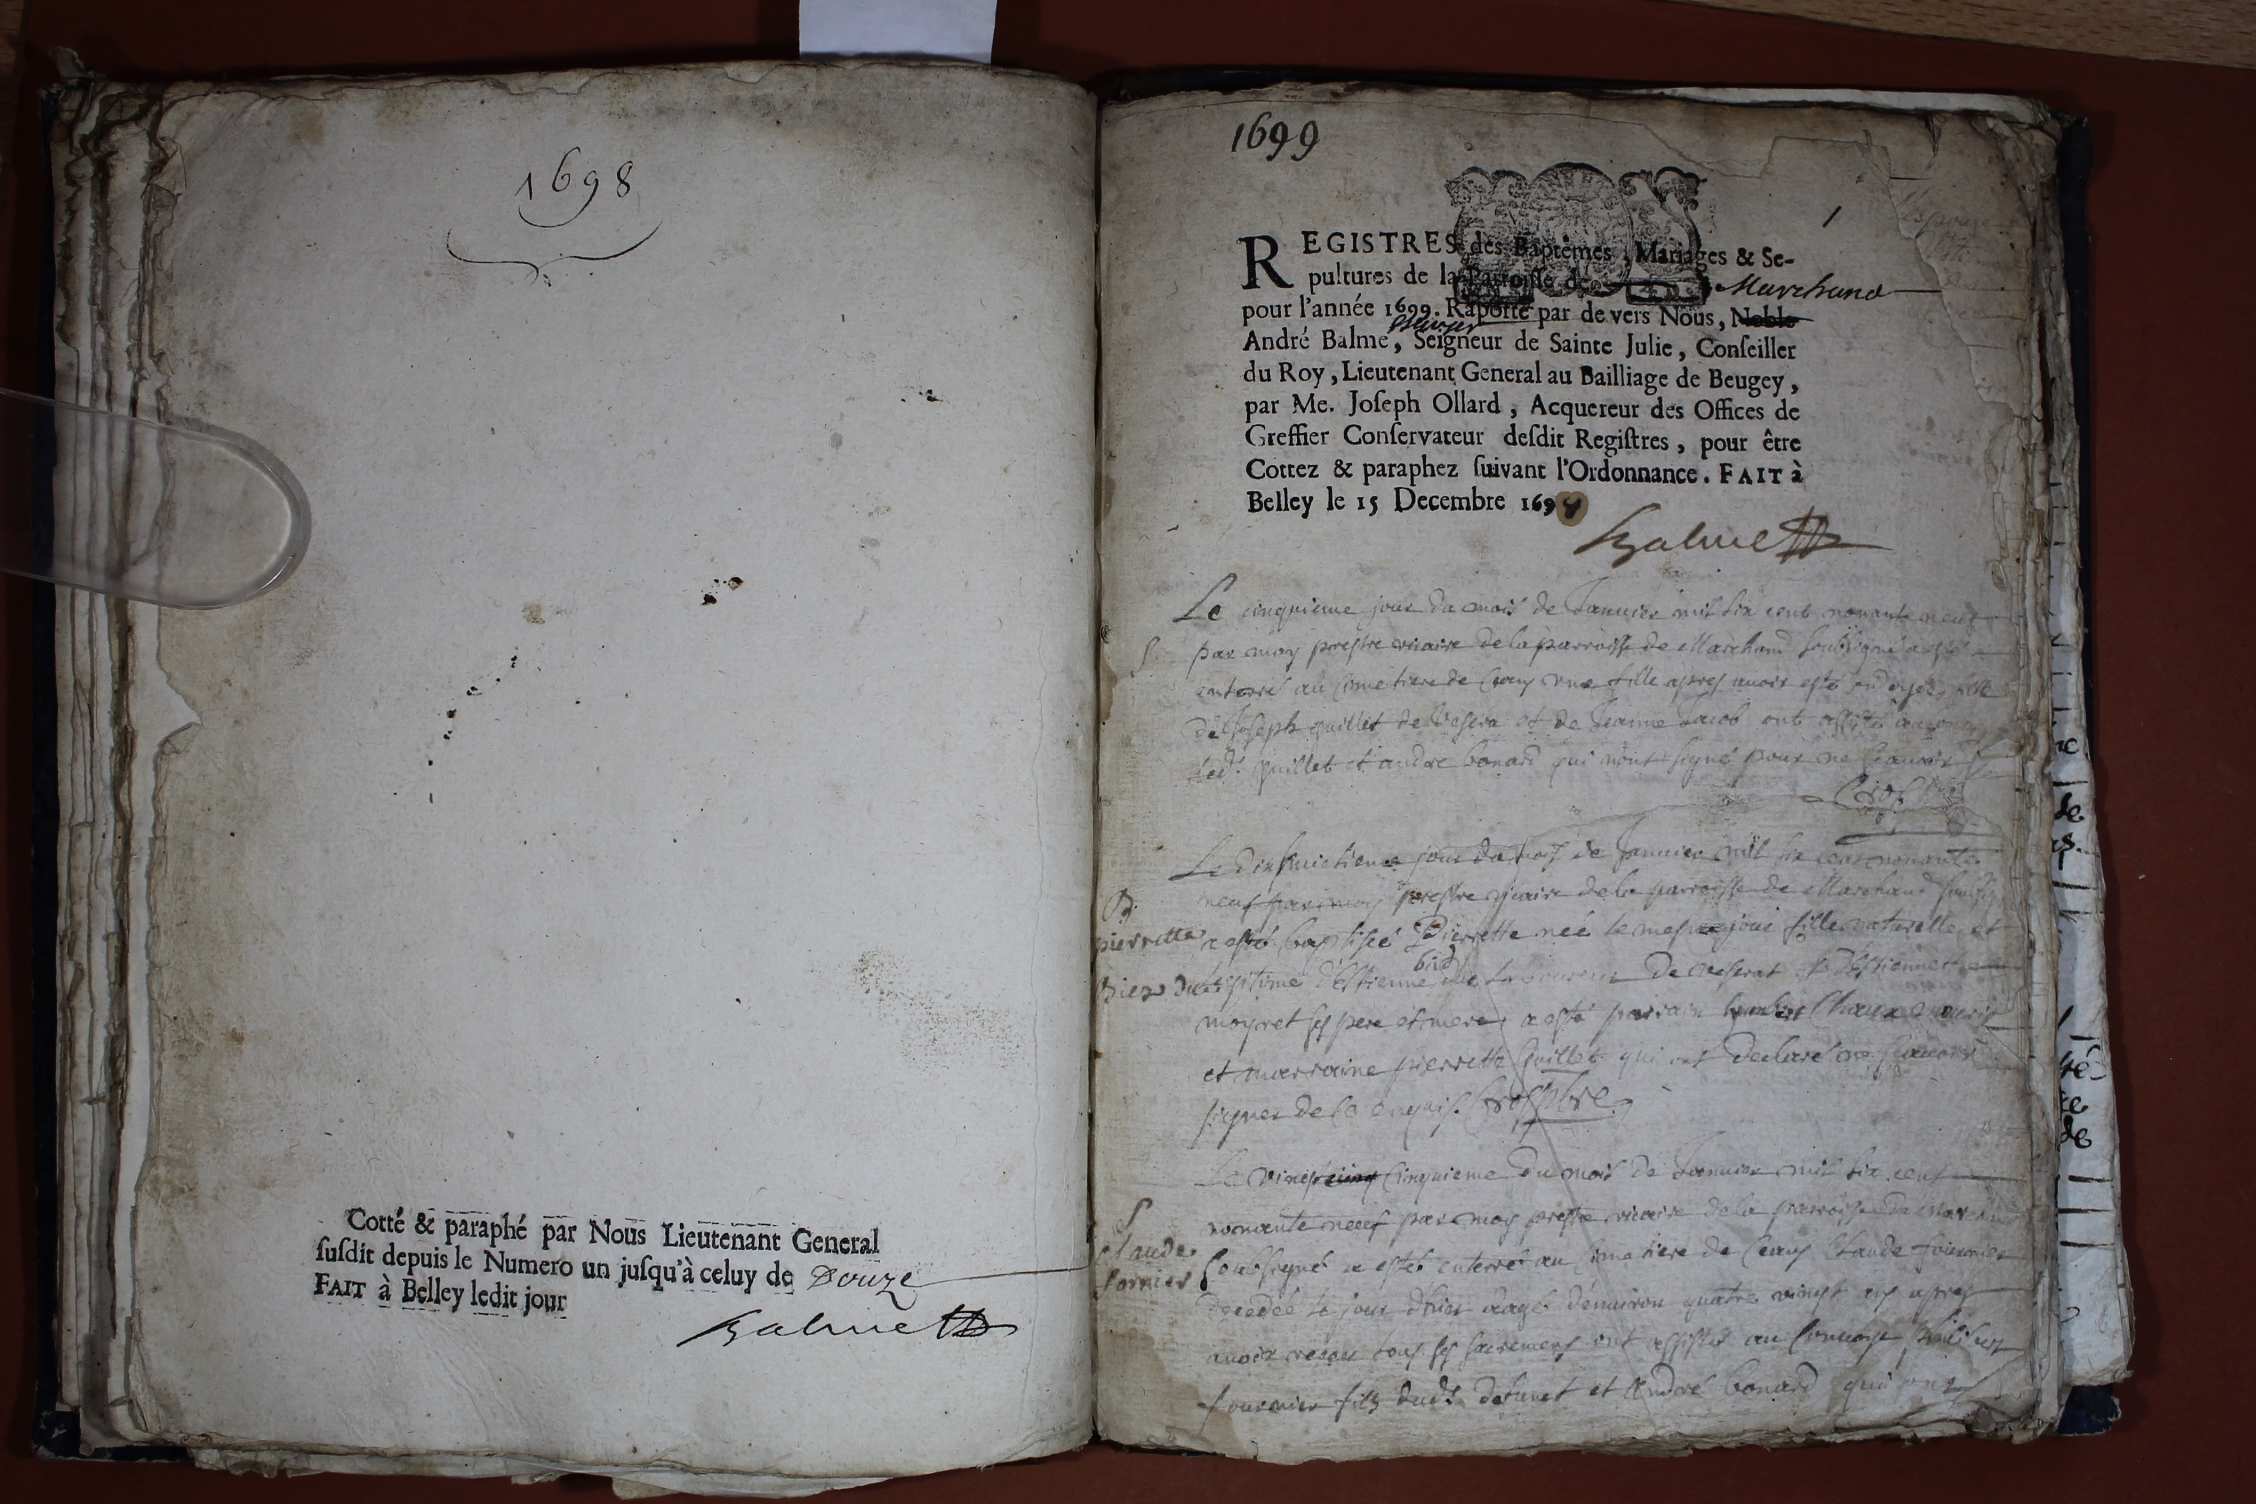 1698
Cotté & paraphé par Nous Lieutenant General
susdit depuis le Numero un jusqu'à celuy de Douze
FAIT à Belley ledit jour
Balme
1699
1
REGISTRES des Baptêmes, Mariages & Se-
pultures de la Parroisse de Marchand
pour l'année 1699. Raporté par devers Nous, Noble
André Balme, Seigneur de Sainte Julie, Conseiller
du Roy, Lieutenant General au Bailliage de Beugey,
par Me. Joseph Ollard, Acquereur des Offices de
Greffier Conservateur desdit Registres, pour être
Cottez & paraphez suivant l'Ordonnance. FAIT à
Belley le 15 Decembre 1698
Balme
Le cinquieme jour du mois de Januier mil six cent nonante neuf
S.
par moy prestre vicaire de la parroisse de Marchand soubsigné a esté
enterré au cimetiere de ceans une fille apres auoir esté ondoyée fille
de Joseph quillet de et de Jeanne Jacob ont assisté
led. quillet et andre bonard qui n'ont signé pour ne scauoir
Le dixhuictieme jour du mois de Januier mil six cent nonante
B.
pierrette
neuf par moy prestre vicaire de la parroisse de Marchand
a esté baptisée Pierrette née le mesme jour fille naturelle et
legitime d'Estienne laboureur de et d'Estiennette
moyret ses pere et mere, a esté parrain
et marraine pierrette quillet qui ont declaré ne scauoir
signer de ce enquis. Cros pbre
Le vingt cinq cinquieme du mois de Januier mil six cent
S
Claude
fornier
nonante neuf par moy prestre vicaire de la parroisse de Marchand
soubsigné a estée enterré au cimetiere de ceans Claude fournier
decedé le jour d'hier aagé d'enuiron quatre vingt ans apres
auoir receu tous ses sacremens ont assisté au conuoye philibert
fournier fils dud. defunct et André bonard qui